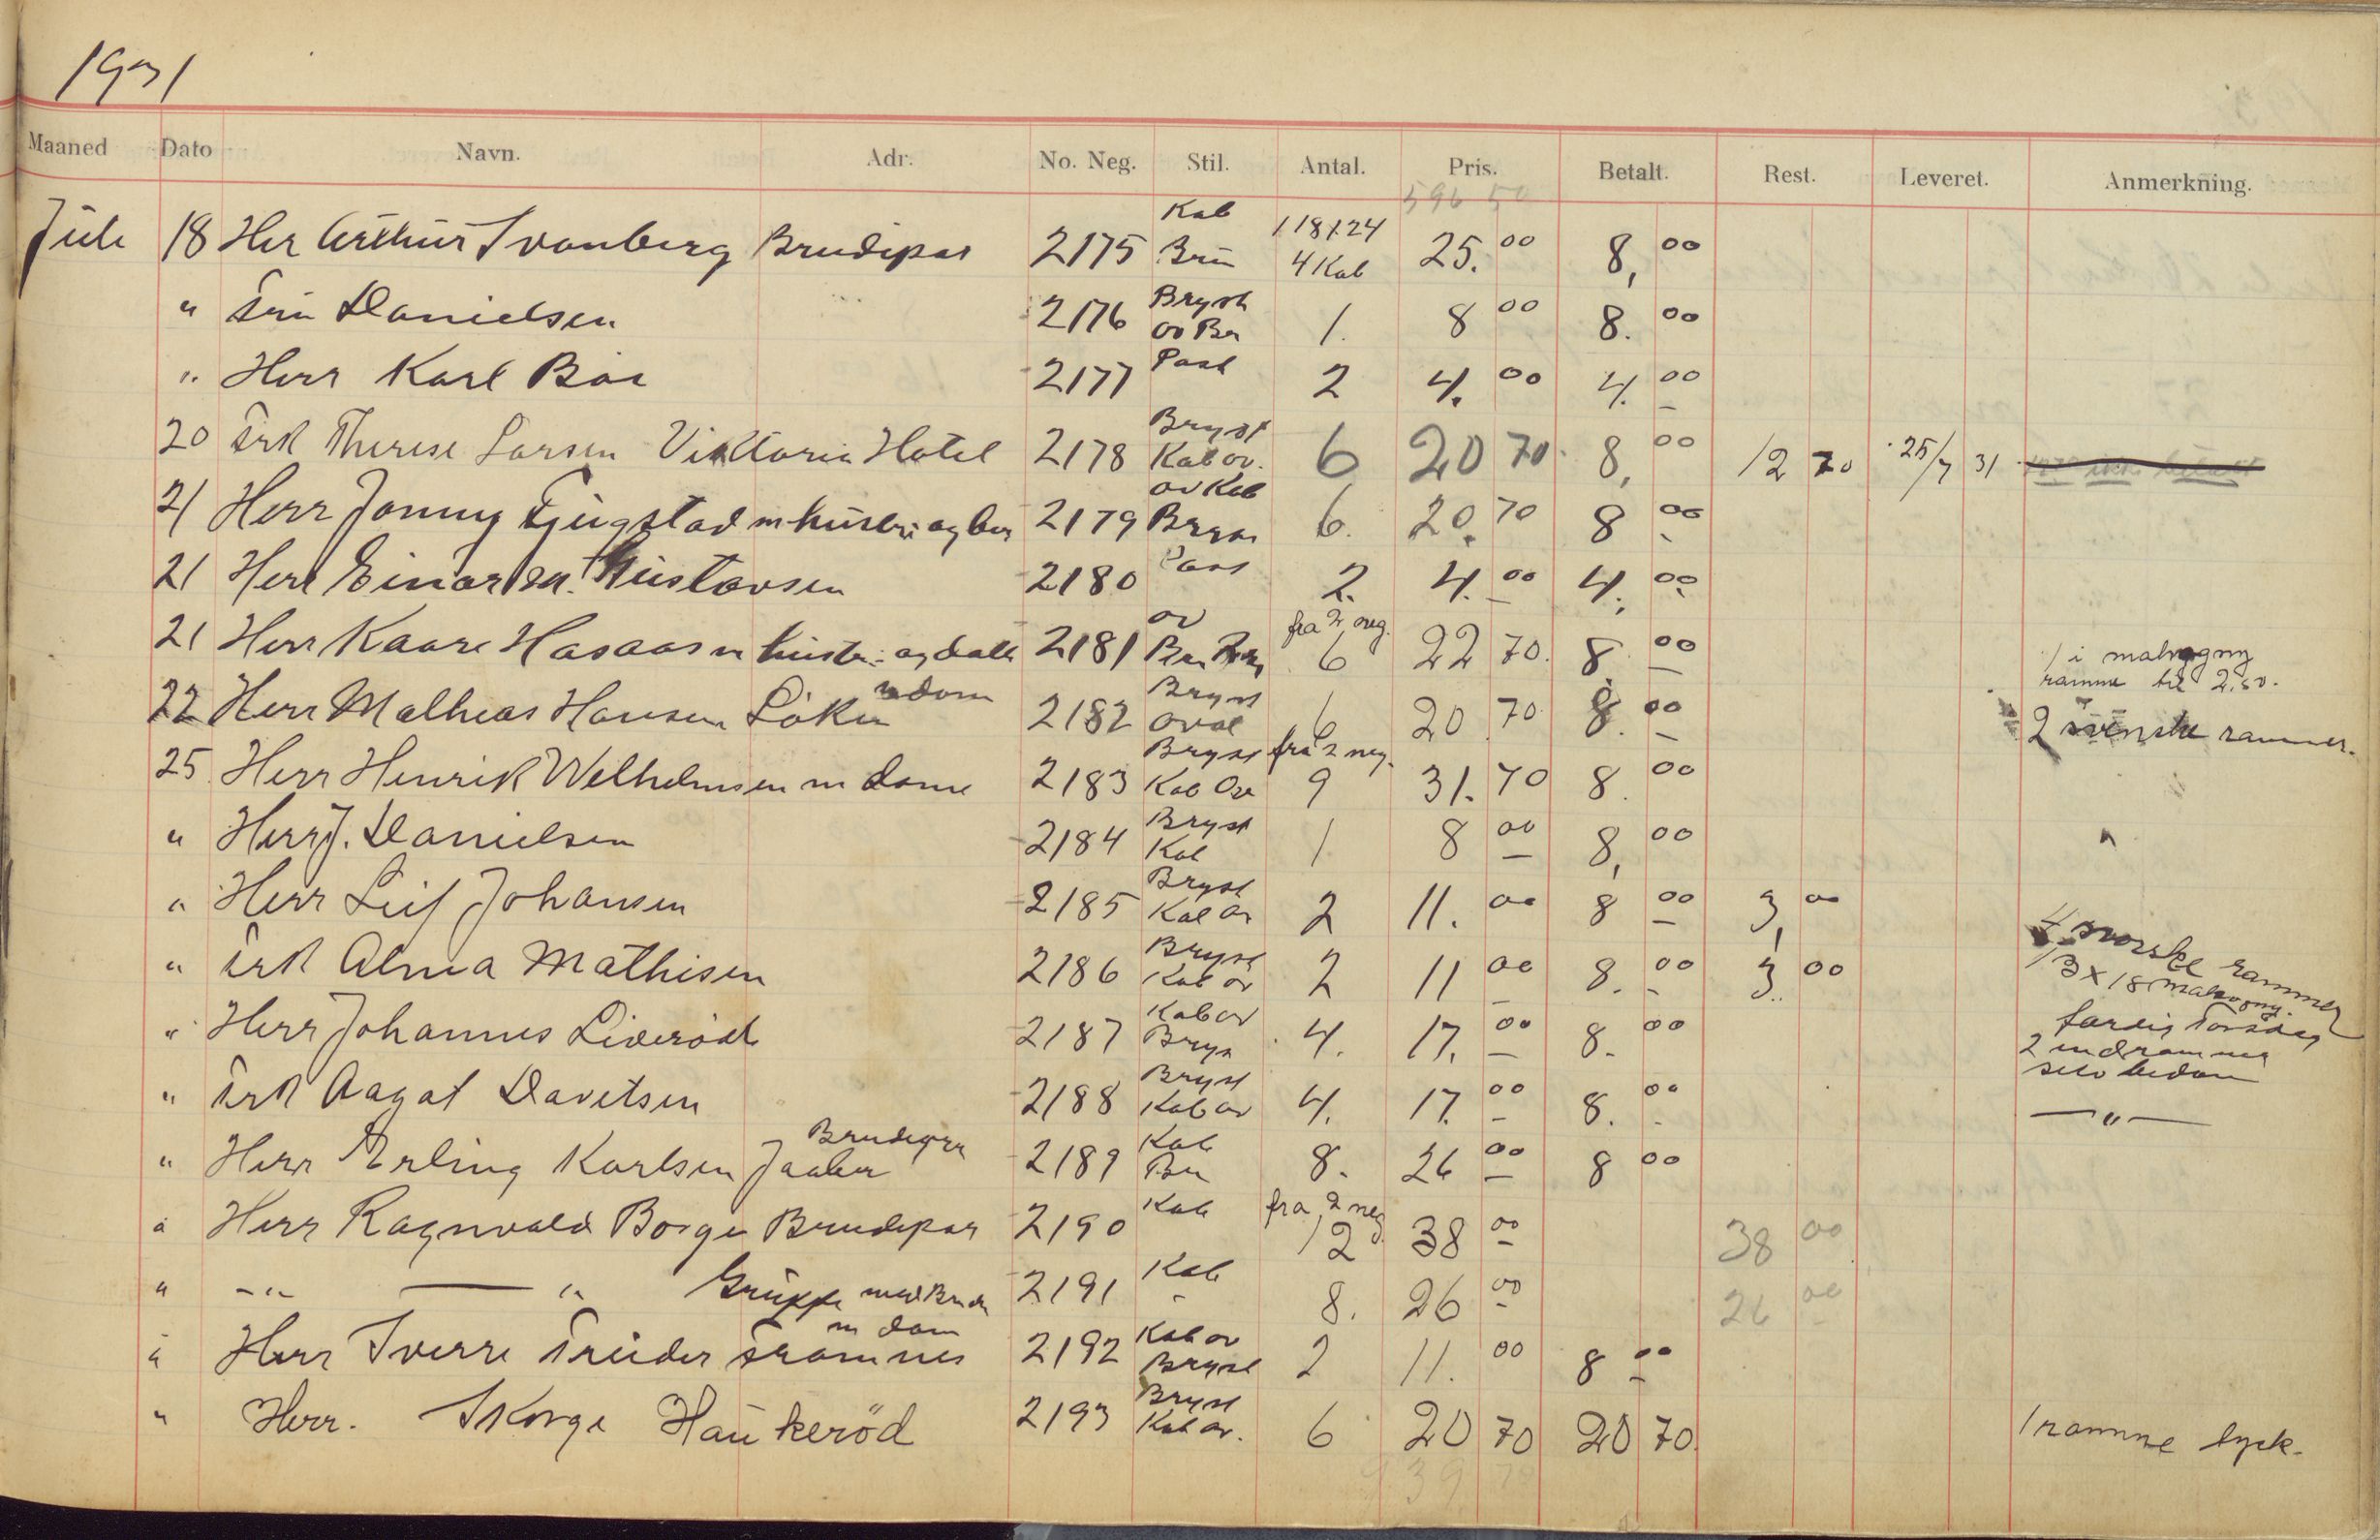 1931
Maaned Dato Navn. Adr. No. Neg. Stil. Antal. Pris. Betalt. Rest. Leveret. Anmerkning.
596 50
Juli 18 Her Arthur Svanberg Brudepar 2175 Kab Brü 1 18x24 4 Kab 25. 00 8, 00
" Frü Danielsen 2176 Bryst ov Ber 1. 8 00 8. 00
" Herr Karl Bøe 2177 Post 2 4. 00 4. 00
20 Frk Therese Larsen Viktoria Hotel 2178 Bryst Kab ov. 6 20 70 8, 00 12 70 25/7 31
21 Herr Jonny Fjugstad m hustru og 2179 ov Kab 6. 20. 70 8 00
21 Herr Einar M. Gustavsen 2180 Pass 2. 4. 00 4. 00
21 Herr Kaare Hasaas m hustr. og datt 2181 ov fra 2 neg. 6 22 70. 8 00 1 i mahogny ramme til 2.50.
22 Herr Mathias Hansen Löken m dam 2182 Bryst oval 6 20 70 8. 00 2 svenske rammer.
25. Herr Henrik Welhelmsen m dame 2183 Bryst Kab Ov fra 2 neg. 9 31. 70 8. 00
" Herr J. Danielsen 2184 Bryst Kab 1 8 00 8, 00
" Herr Leif Johansen 2185 Bryst Kab ov 2 11. 00 8 00 3, 00
" Frk Alma Mathisen 2186 Bryst Kab ov 2 11 00 8. 00 3. 00 4 norske rammer
13x18 mahogny.
" Herr Johannes Liverød 2187 Kab ov Brys 4. 17. 00 8. 00 færdig Torsdag
2 indrammes
" Frk Aagot Davitsen 2188 Bryst Kab ov 4. 17. 00 8. 00 — " —
" Herr Erling Karlsen Jaaber Brudepar 2189 Kab Bru 8. 26 00 8 00
" Herr Ragnvald Borge Brudepar 2190 Kab fra 2 neg 12 38 00 38 00
" - " — " Grüppe med Brude 2191 Kab 8. 26 00 26 00
" Herr Sverre Treider Framnes m dam 2192 Kab ov Bryst 2 11. 00 8 00
" Herr. Skorge Haukerød 2193 Bryst Kab ov. 6 20 70 20 70. 1 ramme
939 70